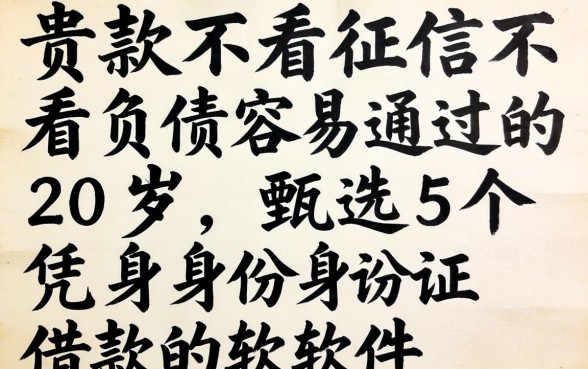 贵款不看征信不
看负债容易通过的
20岁，甄选5个
凭身身份身份证
借款的软软件